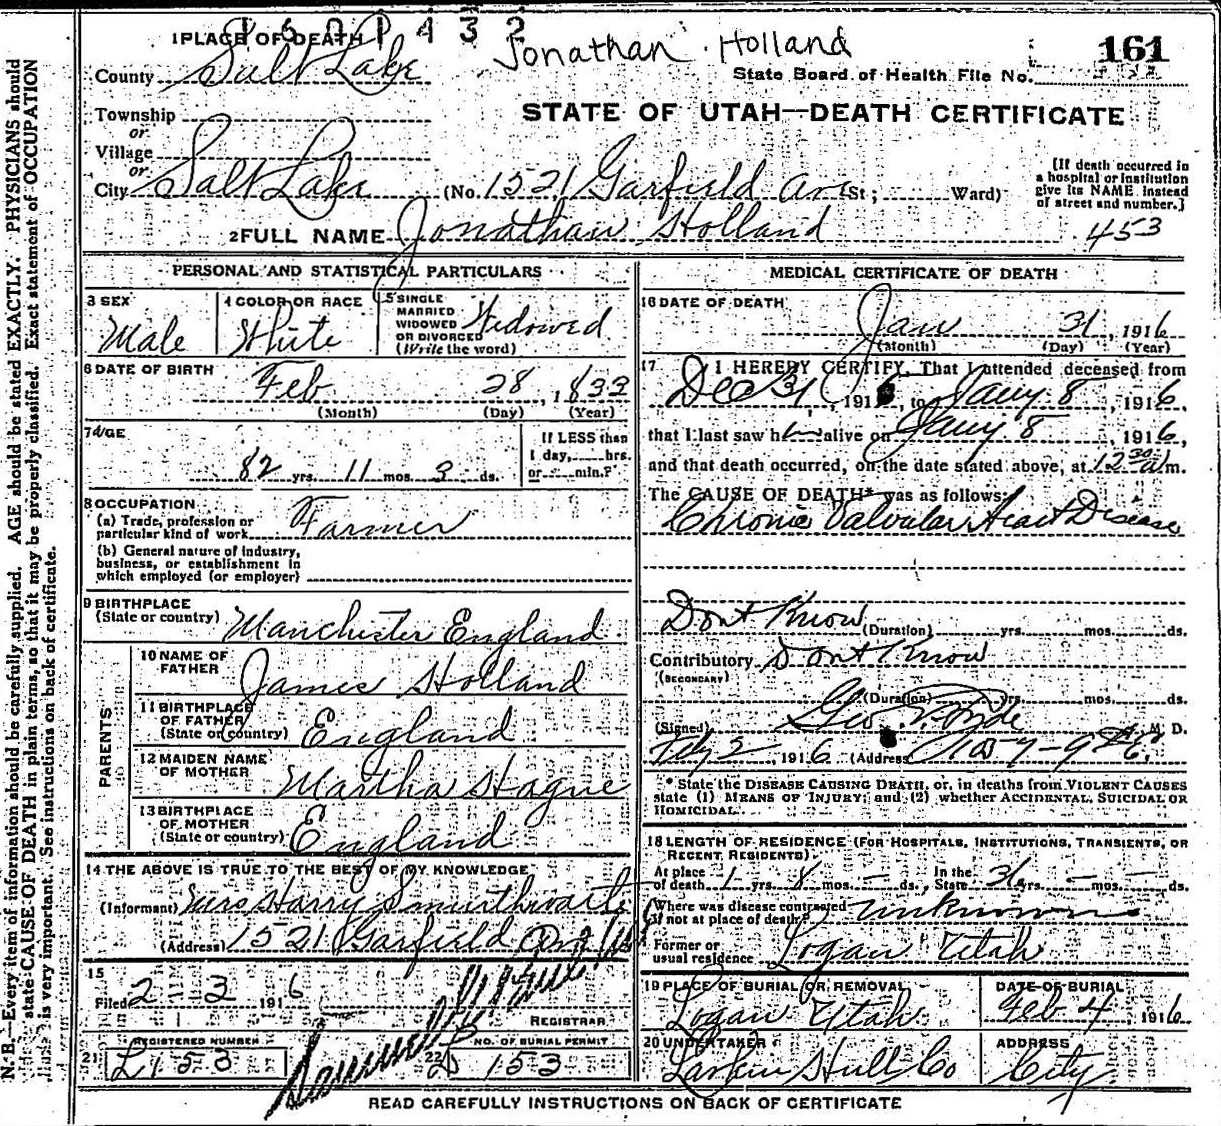 1601432
Jonathan Holland
161
1 PLACE OF DEATH
County Salt Lake
State Board of Health File No.
STATE OF UTAH—DEATH CERTIFICATE
Township
or
Village
or
City Salt Lake (No. 1521 Garfield Ave St; Ward)
[If death occurred in
a hospital or institution
give its NAME instead
of street and number.]
2 FULL NAME Jonathan Holland
453
PERSONAL AND STATISTICAL PARTICULARS
3 SEX
Male
4 COLOR OR RACE
White
5 SINGLE
MARRIED
WIDOWED
OR DIVORCED
(Write the word)
Widowed
6 DATE OF BIRTH
Feb 28, 1833
(Month) (Day) (Year)
7 AGE
82 yrs. 11 mos. 3 ds.
If LESS than
1 day, hrs.
or min.?
8 OCCUPATION
(a) Trade, profession or
particular kind of work
Farmer
(b) General nature of industry,
business, or establishment in
which employed (or employer)
9 BIRTHPLACE
(State or country)
Manchester England
PARENTS
10 NAME OF
FATHER
James Holland
11 BIRTHPLACE
OF FATHER
(State or country)
England
12 MAIDEN NAME
OF MOTHER
Martha Hague
13 BIRTHPLACE
OF MOTHER
(State or country)
England
14 THE ABOVE IS TRUE TO THE BEST OF MY KNOWLEDGE
(Informant) Mrs Harry Smurthwaite
(Address) 1521 Garfield
15
Filed 2 3 1916
REGISTRAR
21
REGISTERED NUMBER
L153
22
NO. OF BURIAL PERMIT
153
MEDICAL CERTIFICATE OF DEATH
16 DATE OF DEATH
Jan 31, 1916
(Month) (Day) (Year)
17 I HEREBY CERTIFY, That I attended deceased from
Dec 31, 191, to Jany 8, 1916,
that I last saw h alive on Jany 8, 1916,
and that death occurred, on the date stated above, at 12 30 a m.
The CAUSE OF DEATH* was as follows:
Chronic Valvular Heart Disease
Dont Know
(Duration) yrs. mos. ds.
Contributory Dont Know
(SECONDARY)
(Duration) yrs. mos. ds.
(Signed) Geo. M. D.
2, 1916 (Address)
* State the DISEASE CAUSING DEATH, or, in deaths from VIOLENT CAUSES
state (1) MEANS OF INJURY; and (2) whether ACCIDENTAL, SUICIDAL OR
HOMICIDAL.
18 LENGTH OF RESIDENCE (FOR HOSPITALS, INSTITUTIONS, TRANSIENTS, OR
RECENT RESIDENTS).
At place
of death 1 yrs. 8 mos. – ds.
In the
State 36 yrs. – mos. – ds.
Where was disease contracted
if not at place of death?
unknown
Former or
usual residence
Logan Utah
19 PLACE OF BURIAL OR REMOVAL
Logan Utah
DATE OF BURIAL
Feb 4, 1916
20 UNDERTAKER
Larkin Hull Co
ADDRESS
City
READ CAREFULLY INSTRUCTIONS ON BACK OF CERTIFICATE
N. B.—Every item of information should be carefully supplied. AGE should be stated EXACTLY. PHYSICIANS should
state CAUSE OF DEATH in plain terms, so that it may be properly classified. Exact statement of OCCUPATION
is very important. See instructions on back of certificate.